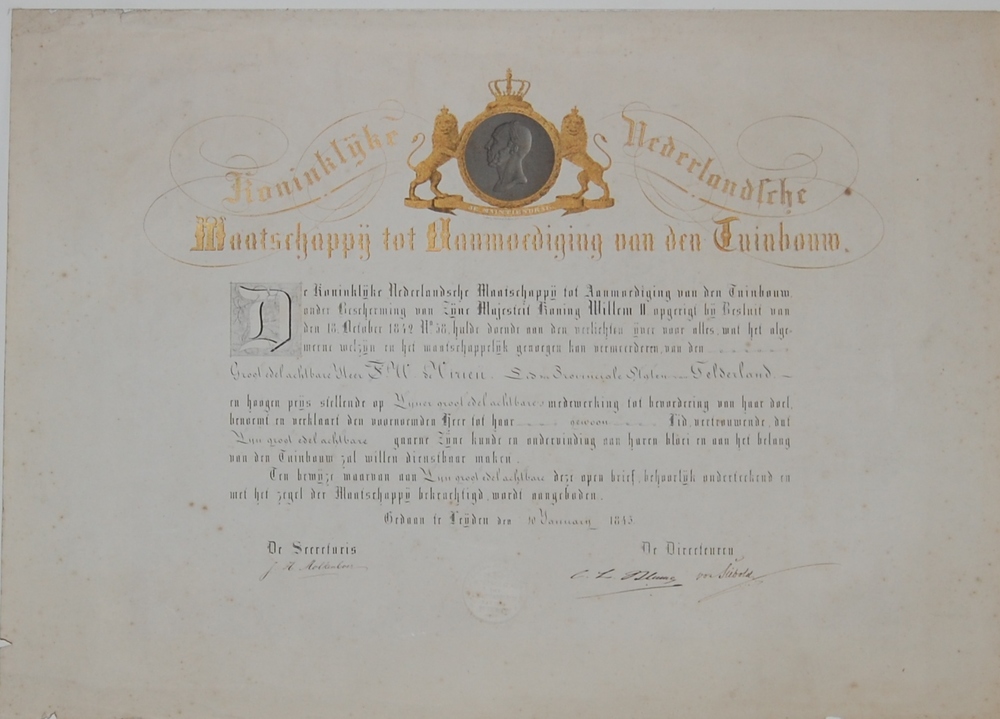 Koninklijke Nederlandsche
Maatschappij tot Aanmoediging van den Tuinbouw.
JE MAINTIENDRAI
De Koninklijke Nederlandsche Maatschappij tot Aanmoediging van den Tuinbouw,
onder Bescherming van Zijne Majesteit Koning Willem II opgerigt bij Besluit van
den 18. October 1842 No. 58, hulde doende aan den verlichten ijver voor alles, wat het alge-
meene welzijn en het maatschappelijk genoegen kan vermeerderen, van den
Groot edel achtbare Heer F. W. de Virieu. Lid der Provinciale Staten van Gelderland.
en hoogen prijs stellende op Zijner groot edel achtbare's medewerking tot bevordering van haar doel,
benoemt en verklaart den voornoemden Heer tot haar gewoon Lid, vertrouwende, dat
Zijn groot edel achtbare gaarne Zijne kunde en ondervinding aan haren bloei en aan het belang
van den Tuinbouw zal willen dienstbaar maken.
Ten bewijze waarvan aan Zijn groot edel achtbare deze open brief, behoorlijk onderteekend en
met het zegel der Maatschappij bekrachtigd, wordt aangeboden.
Gedaan te Leijden den 10 January 1843.
De Secretaris De Directeuren
J. H. Molkenboer C. L. Blume von Siebold